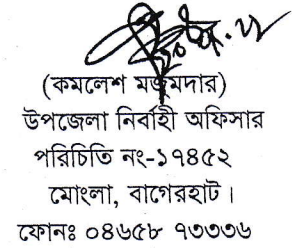 (কমলেশ মজুমদার)
উপজেলা নির্বাহী অফিসার
পরিচিতি নং-১৭৪৫২
মোংলা, বাগেরহাট।
ফোনঃ ০৪৬৫৮ ৭৩৩৩৬